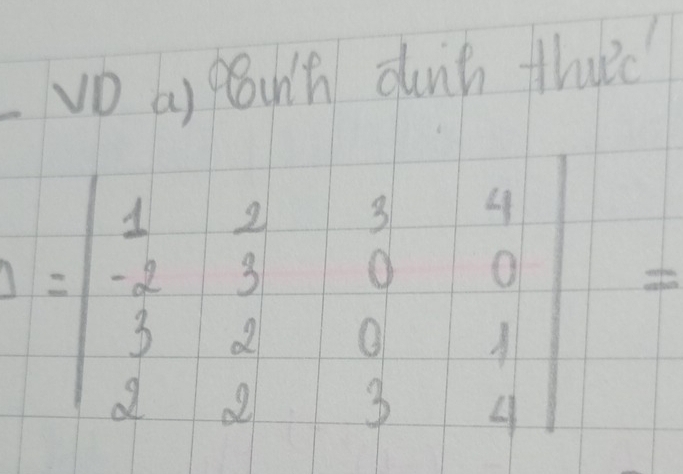 - VD a) Tính định thức
D = | 1 2 3 4 | =
-2 3 0 0
3 2 0 1
2 2 3 4